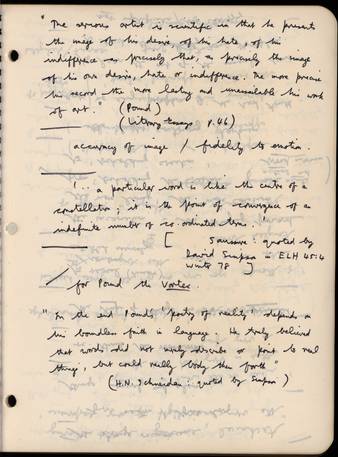 "The serious artist is scientific in that he presents
the image of his desire, of his hate, of his
indifference as precisely that, as precisely the image
of his own desire, hate or indifference. The more precise
his record the more lasting and unassailable his work
of art." (Pound)
(Literary Essays p.46)
accuracy of image / fidelity to emotion.
'.. a particular word is like the centre of a
constellation; it is the point of convergence of an
indefinite number of co-ordinated terms..'
[ Saussure: quoted by
David Simpson in ELH 45:4
Winter 78 ]
/ for Pound the Vortex.
"In the end Pound's 'poetry of reality' depends on
his boundless faith in language. He truly believed
that words did not merely describe or point to real
things, but could really body them forth"
(H.N. Schneidau: quoted by Simpson)